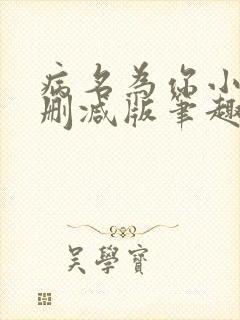 病名为你小
删减版笔趣
吴學寳